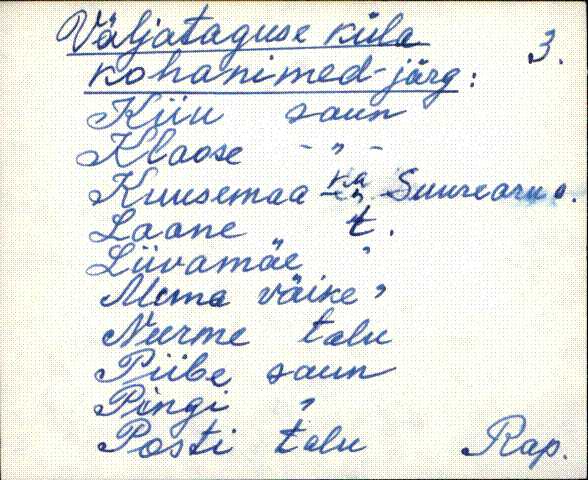 Väljataguse küla 3.
kohanimed-järg:
Kiiu saun
Klaose - " -
Kuusemaa ka Suurearu
Laane t.
Liivamäe "
Mema väike "
Nurme talu
Piibe saun
Pingi "
Posti talu Rap.